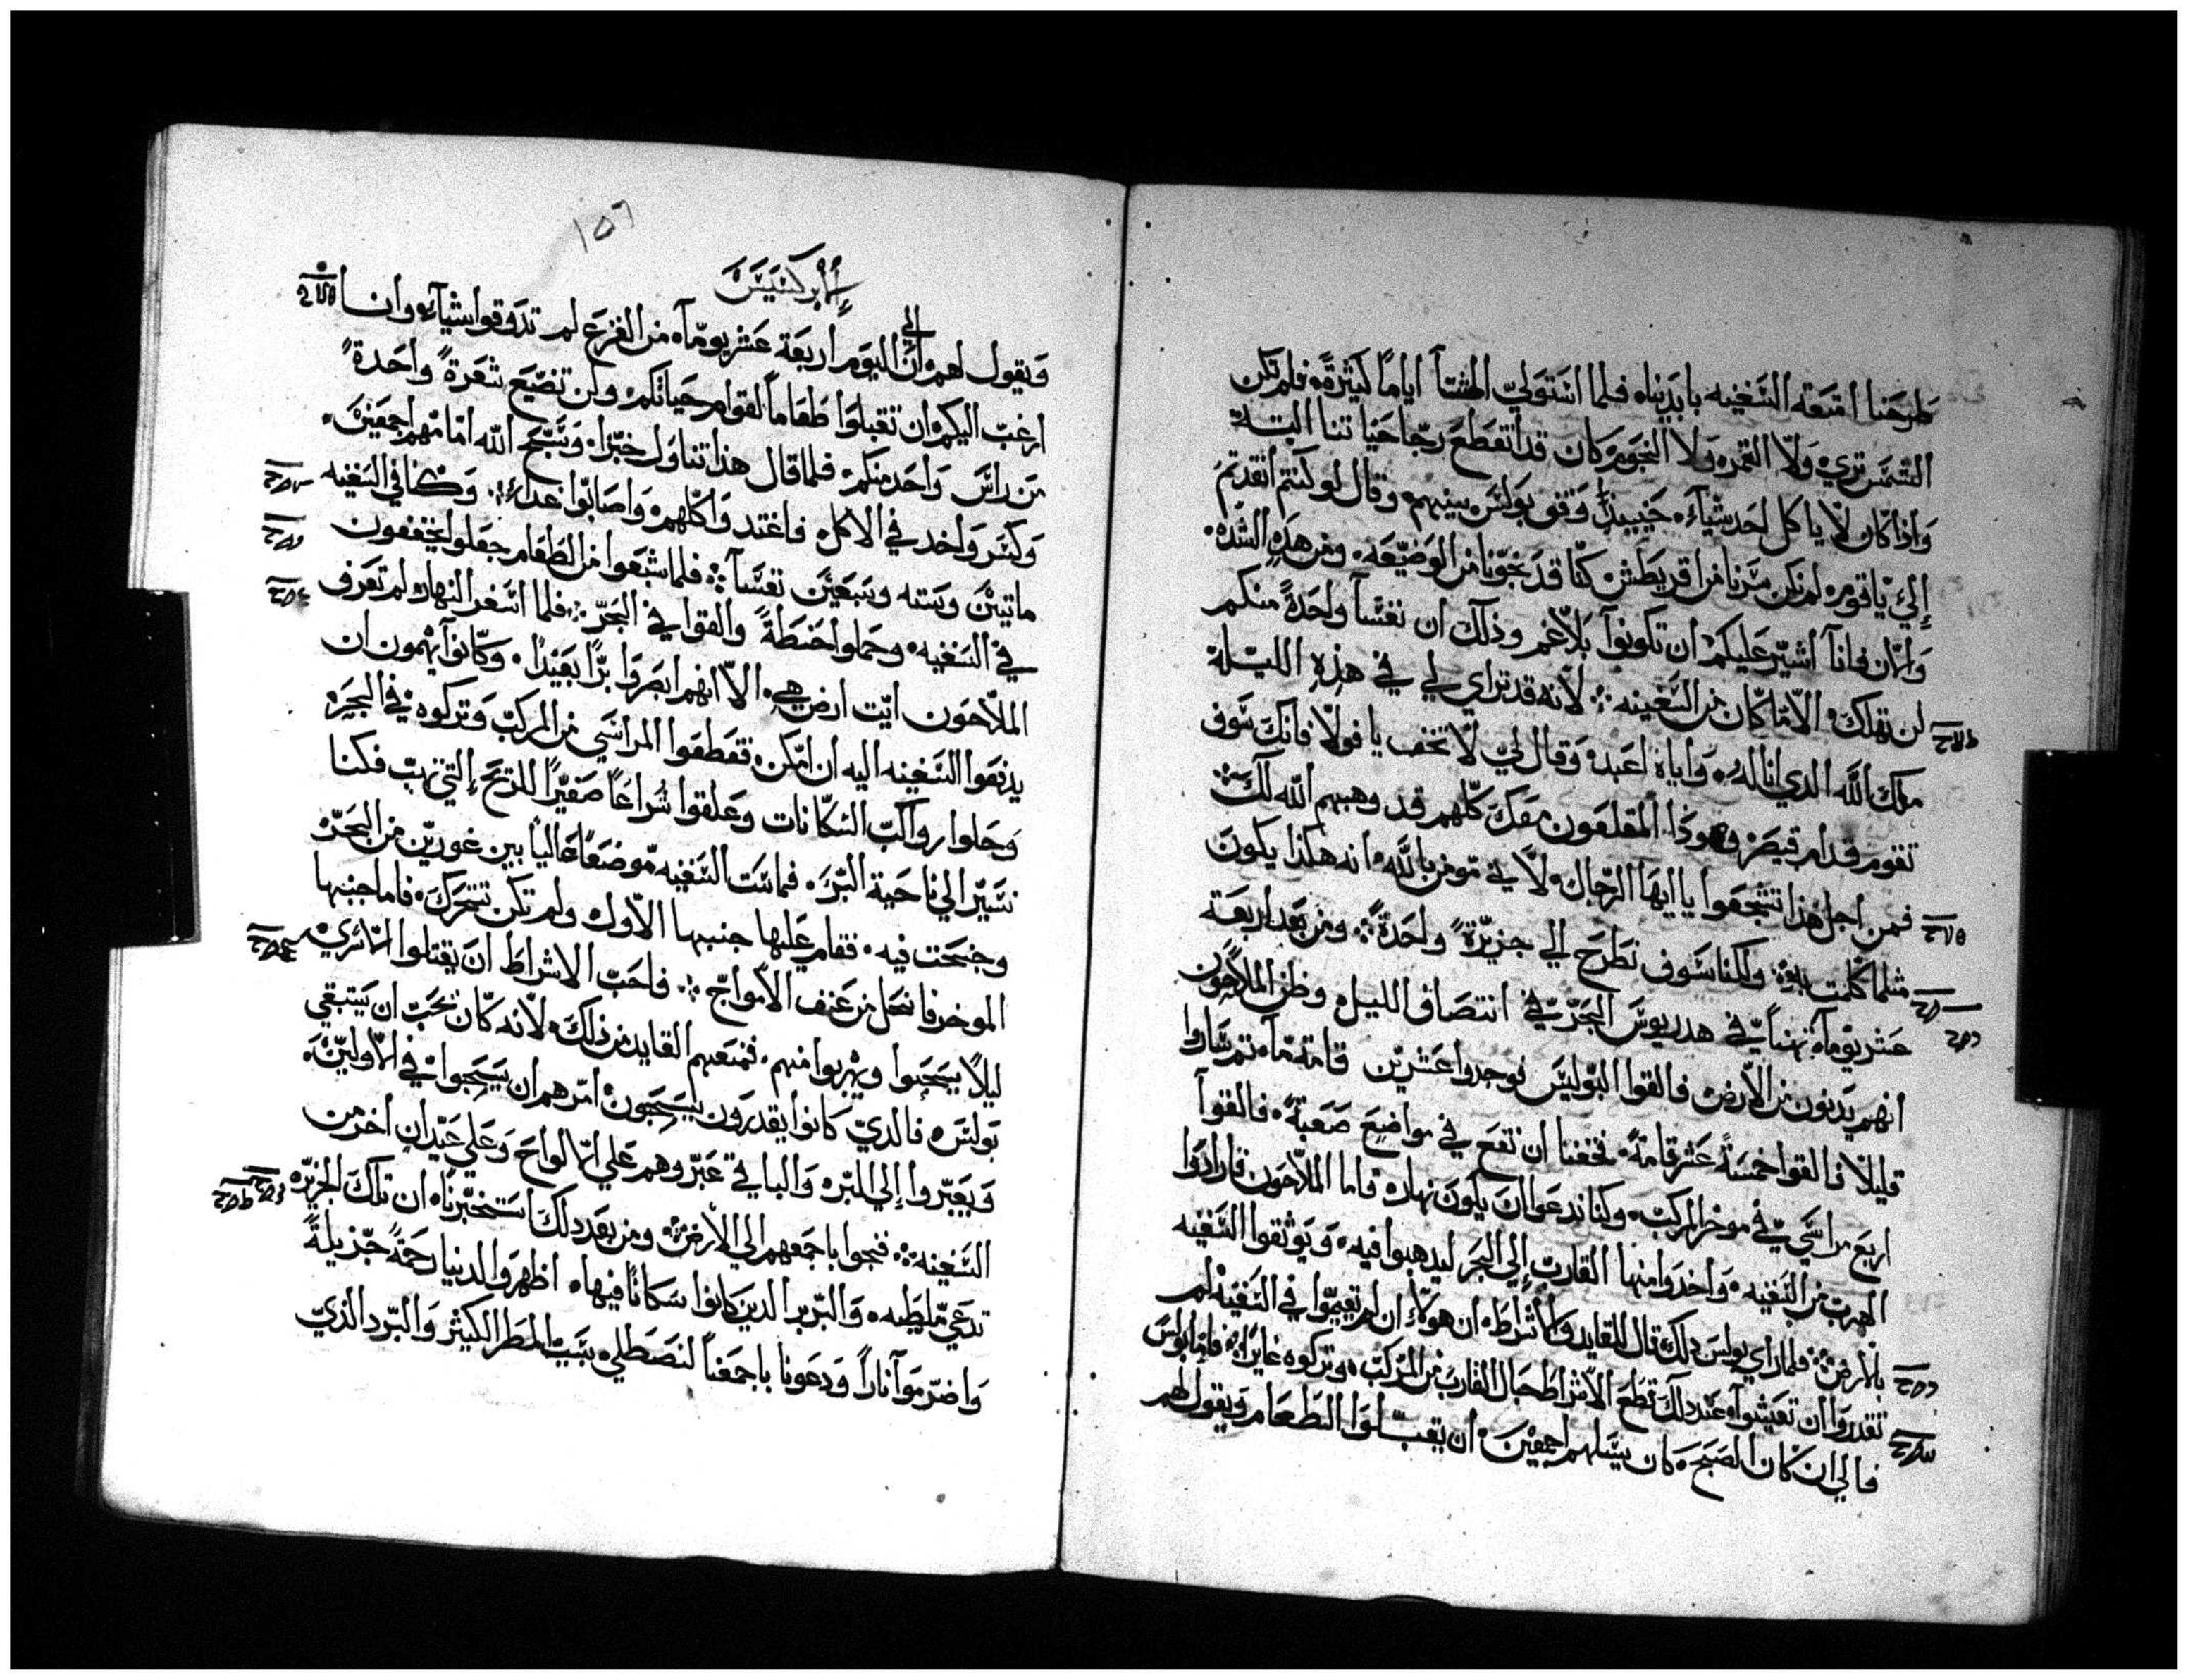 طرحنا امتعة السفينه بايدينا، فلما استولي الشتا اياماً كثيرة، فلم تكن
الشمس تري، ولا القمر، ولا النجوم، وكان قد انقطع رجا حياتنا البتة
واذ كان لا ياكل احد شيا، حينيذ وقف بولس بينهم، وقال لو كنتم انقدتم
إلي يا قوم، لم نكن سرنا من اقريطش، كنا قد نجونا من الوضيعه، ومن هذه الشده،
والان فانا اشير عليكم ان تكونوا بلا غم وذلك ان نفساً واحدة منكم
لن تهلك، الا ما كان من السفينه ܀ لانه قد تراي لي في هذه الليلة
ملاك الله الدي انا له، واياه اعبد، وقال لي لا تخف يا فولا فانك سوف
تقوم قدام قيصر وهوذا المقلعون معك كلهم قد وهبهم الله لك ܀
فمن اجل هذا تشجعوا يا ايها الرجال، لاني مومن بالله، انه هكذا يكون
مثلما كلمت به، ولكنا سوف نطرح الي جزيرة واحدة ܀ ومن بعد اربعة
عشر يوماً تهنا في هدريوس البحر في انتصاف الليل، وظن الملاحون
انهم يدنون من الارض فالقوا البوليس فوجدوا عشرين قامة ما، تم ساروا
قليلا فالقوا خمسة عشر قامة، فخفنا ان نقع في مواضع صعبة، فالقوا
اربع مراسي في موخر المركب، وكنا ندعوا ان يكون نهار، فاما الملاحون فارادوا
الهرب من السفينه، واخدوا منها القارب إلي البحر ليدهبوا فيه، ويوثقوا السفينه
بالارض ܀ فلما راي بولس ذلك قال للقايد والاشراط، ان هولاء ان لم يقيموا في السفينه لم
تقدروا ان تعيشوا، عند ذلك قطع الاشراط حبال القارب من المركب، وتركوه عايرا، فاما بولس
فالي ان كان الصبح، كان يسلهم اجمعين، ان يقبلوا الطعام ويقول لهم
١٥٦
إبركسيس
ويقول لهم ان الي اليوم اربعة عشر يوماً، من الفزع لم تدوقوا شيا، وانا
ارغب اليكم، ان تقبلوا طعاماً لقوام حياتكم، ولن تضيع شعرة واحدة
من راس واحد منكم، فلما قال هذا تناول خبزا، وسبح الله امامهم اجمعين،
وكسر واخد في الاكل، فاغتدوا كلهم، واصابوا غداء، وكنا في السفينه
مايتين وسته وسبعين نفساً ܀ فلما شبعوا من الطعام جعلوا يخففون
في السفينه، وحملوا حنطة والقوا في البحر ܀ فلما اسفر النهار، لم تعرف
الملاحون ايت ارض هي، الا انهم ابصروا برا بعيدا، وكانوا يهمون ان
يدفعوا السفينه اليه ان امكن، فقطعوا المراسي من المركب وتركوه في البحر،
وحلوا رواكب السكانات وعلقوا شراعاً صغيراً للريح إلتي تهب فكنا
نسير الي ناحية البر، فماست السفينه موضعا عالياً بين غورين من البحر،
وجنحت فيه، فقام عليها جنبها الاول ولم تكن تتحرك، فاما جنبها
الموخر فانحل من عنف الامواج ܀ فاحب الاشراط ان يقتلوا الماسري
ليلا يسبحوا ويهربوا منهم، فمنعهم القايد من ذلك، لانه كان يحب ان يستبقي
بولس، فالدي كانوا يقدرون يسبحون امرهم ان يسبحوا في الاولين،
ويعبروا إلي البر، والباقي عبر وهم علي الالواح وعلي عيدان اخر من
السفينه ܀ فنجوا باجمعهم الي الارض ܀ ومن بعد دلك استخبرنا، ان تلك الجزيره
تدعي مليطيه، والبربر الدين كانوا سكاناً فيها، اظهروا لدينا رحمة جزيلة
واضرموا ناراً ودعونا باجمعنا لنصطلي، بسبب المطر الكثير والبرد الذي